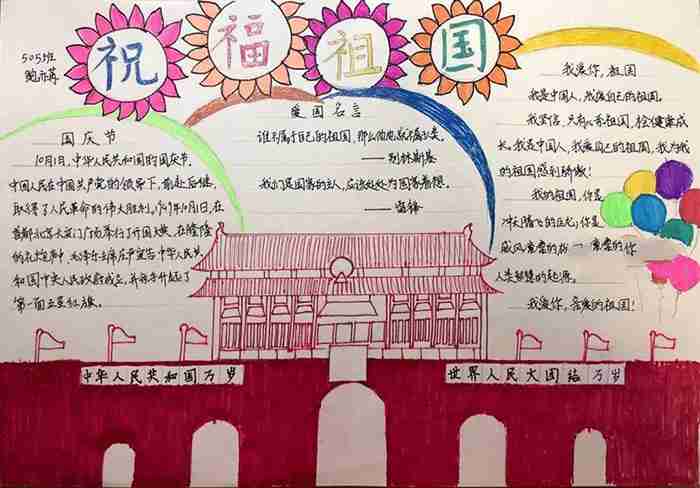 祝福祖国
505班
国庆节
10月1日,中华人民共和国的国庆节。
中国人民在中国共产党的领导下,前赴后继,
取得了人民革命的伟大胜利。1949年10月1日,在
首都北京天安门广场举行了开国大典,在隆隆
的礼炮声中,毛泽东主席庄严宣告中华人民共
和国中央人民政府成立,并亲手升起了
第一面五星红旗。
爱国名言
谁不属于自己的祖国,那么他也就不属于人类。
——别林斯基
我们是国家的主人,应该处处为国家着想。
——雷锋
我爱你,祖国
我是中国人,我爱自己的祖国。
我坚信,只有心系祖国,才能健康成
长,我是中国人,我爱自己的祖国,我为我
的祖国感到骄傲!
我的祖国,你是
冲天腾飞的巨龙;你是
威风 的 一 的 你
人类 的起源。
我爱你,亲爱的祖国!
中华人民共和国万岁
世界人民大团结万岁